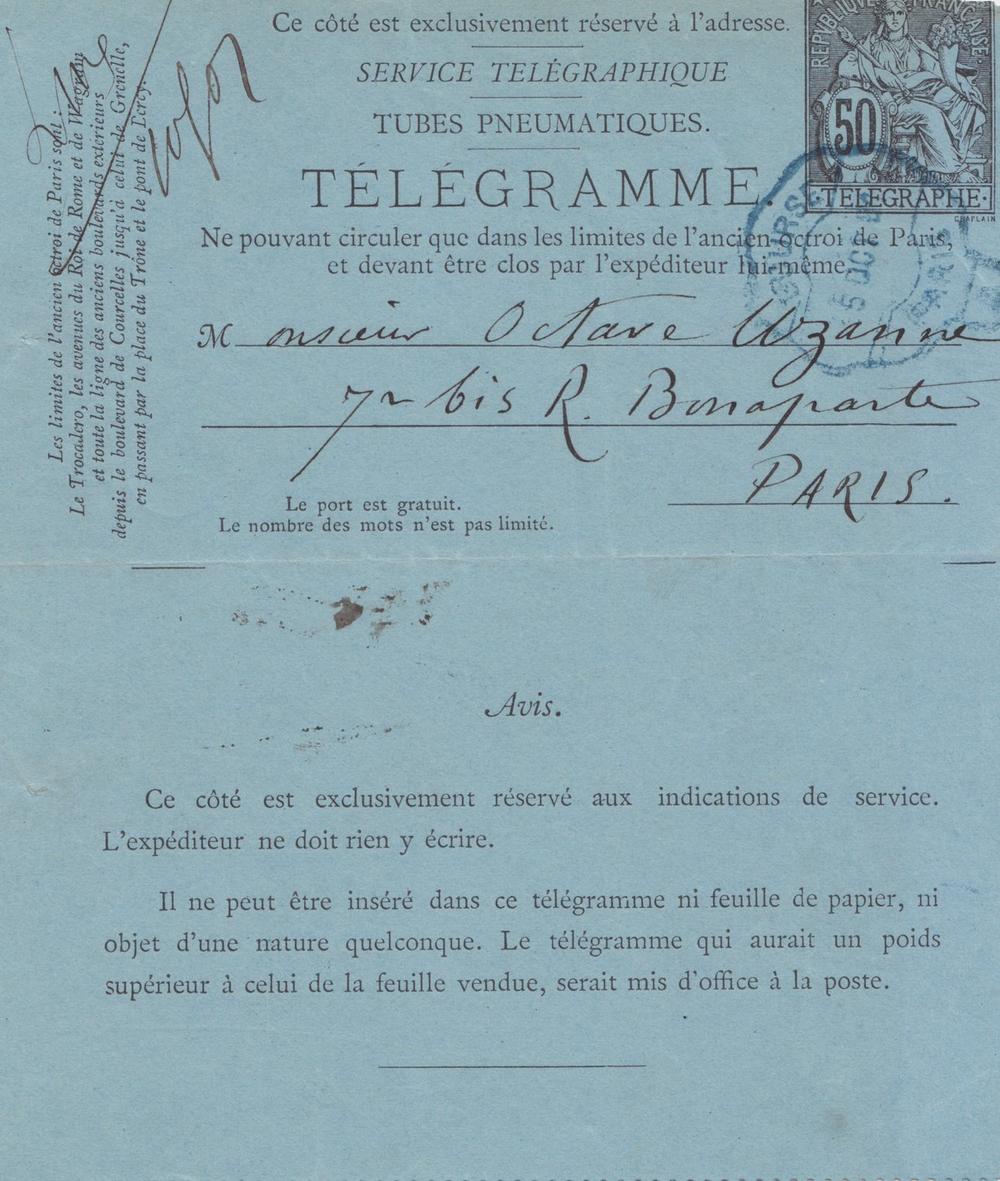 Ce côté est exclusivement réservé à l'adresse.
SERVICE TELÉGRAPHIQUE
TUBES PNEUMATIQUES.
TÉLÉGRAMME.
Ne pouvant circuler que dans les limites de l'ancien octroi de Paris,
et devant être clos par l'expéditeur lui-même.
REPUBLIQUE FRANÇAISE
50
TELEGRAPHE
CHAPLAIN
BOURSE
5 OCT
PARIS
Monsieur Octave Uzanne
72 bis R. Bonaparte
PARIS.
Le port est gratuit.
Le nombre des mots n'est pas limité.
Les limites de l'ancien octroi de Paris sont :
Le Trocadero, les avenues du Roi de Rome et de Wagram
et toute la ligne des anciens boulevards extérieurs
depuis le boulevard de Courcelles jusqu'à celui de Grenelle,
en passant par la place du Trône et le pont de Bercy.
Avis.
Ce côté est exclusivement réservé aux indications de service.
L'expéditeur ne doit rien y écrire.
Il ne peut être inséré dans ce télégramme ni feuille de papier, ni
objet d'une nature quelconque. Le télégramme qui aurait un poids
supérieur à celui de la feuille vendue, serait mis d'office à la poste.